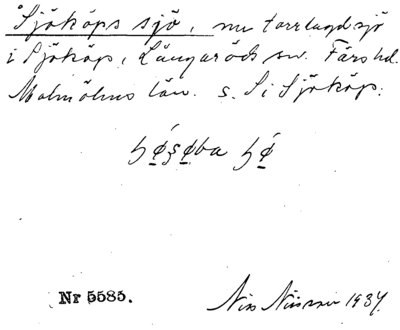 Sjököps sjö, nu torrlagd sjö
i Sjököp, Långaröds sn. Färs hd.
Malmöhus län. s. S i Sjököp:
Nr 5585.
Nils Nilsson 1937.